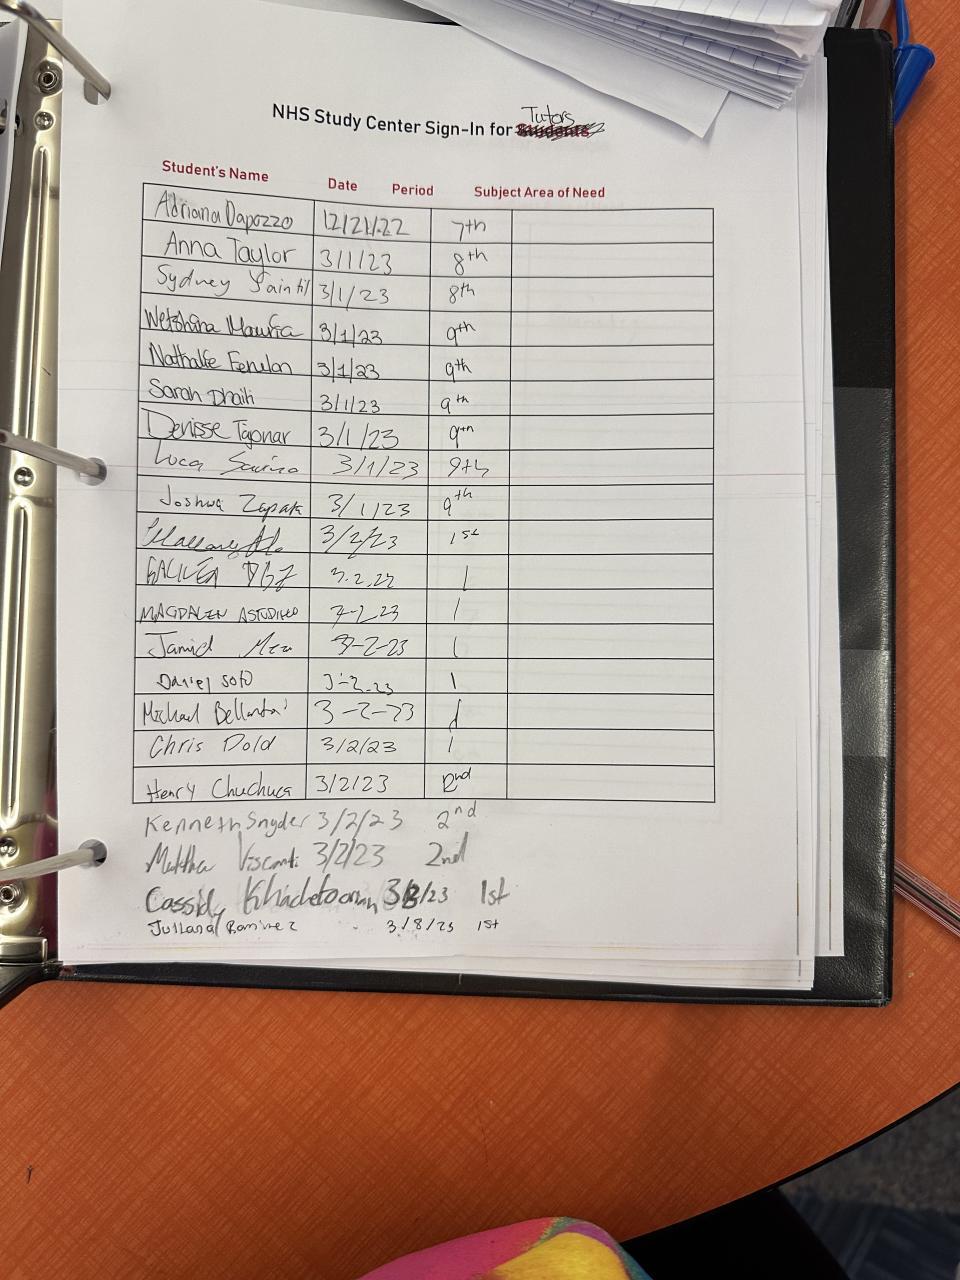 Tutors
NHS Study Center Sign-In for
Student's Name Date Period Subject Area of Need
Adriana Dapozzo 12/21/22 7th
Anna Taylor 3/1/23 8th
Sydney Saintil 3/1/23 8th
3/1/23 9th
Nathalie Fenelon 3/1/23 9th
Sarah Dhaiti 3/1/23 9th
Denisse 3/1/23 9th
Luca 3/1/23 9th
Joshua Zapata 3/1/23 9th
3/2/23 1st
1
MAGDALEN ASTUDILLO 3-2-23 1
3-2-23 1
Daniel Soto 3-2-23 1
Michael 3-2-23 1
Chris Dold 3/2/23 1
Henry Chuchuca 3/2/23 2nd
Kenneth Snyder 3/2/23 2nd
Visconti 3/2/23 2nd
Cassidy 1st
Juliana Ramirez 3/8/23 1st